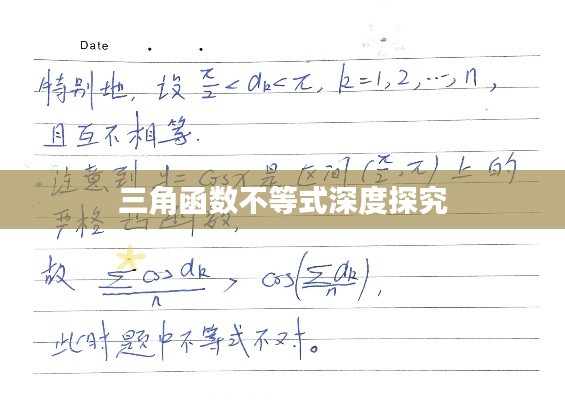 Date . .
特别地, 设 π/2 < αk < π, k=1,2,…,n,
且互不相等.
注意到 y=cosx是区间(π/2,π)上的
三角函数不等式深度探究
严格凸函数,
故 Σcosαk/n > cos(Σαk/n),
此时题中不等式不对。